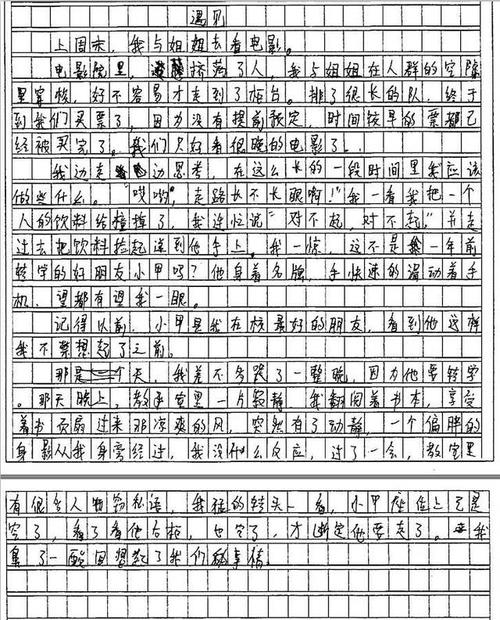 遇见
上周末，我与姐姐去看电影。
电影院里，挤满了人，我与姐姐在人群的空隙
里穿梭，好不容易才走到了柜台。排了很长的队，终于
到我们买票了，因为没有提前预定，时间较早的票都已
经被买完了。我们只好看很晚的电影了。
我边走边思考，在这么长的一段时间里我应该
做些什么。"哎哟，走路长不长眼啊！"我一看我把一个
人的饮料给撞掉了，我连忙说"对不起，对不起。"并走
过去把饮料捡起送到他手上。我一惊，这不是一年前
转学的好朋友小甲吗？他身着名牌，手快速的滑动着手
机，望都有望我一眼。
记得以前，小甲是我在校最好的朋友，看到他这样
我不禁想起了之前。
那是一个天，我差不多哭了一整晚，因为他要转学
。那天晚上，教室里一片寂静，我翻阅着书本，享受
着书页扇过来那凉爽的风，突然有了动静，一个偏胖的
身影从我身旁经过，我没什么反应，过了一会，教室里
有很多人窃窃私语，我猛的转头一看，小甲座位上已是
空了，看了看他右柜，也空了，才断定他要走了。我